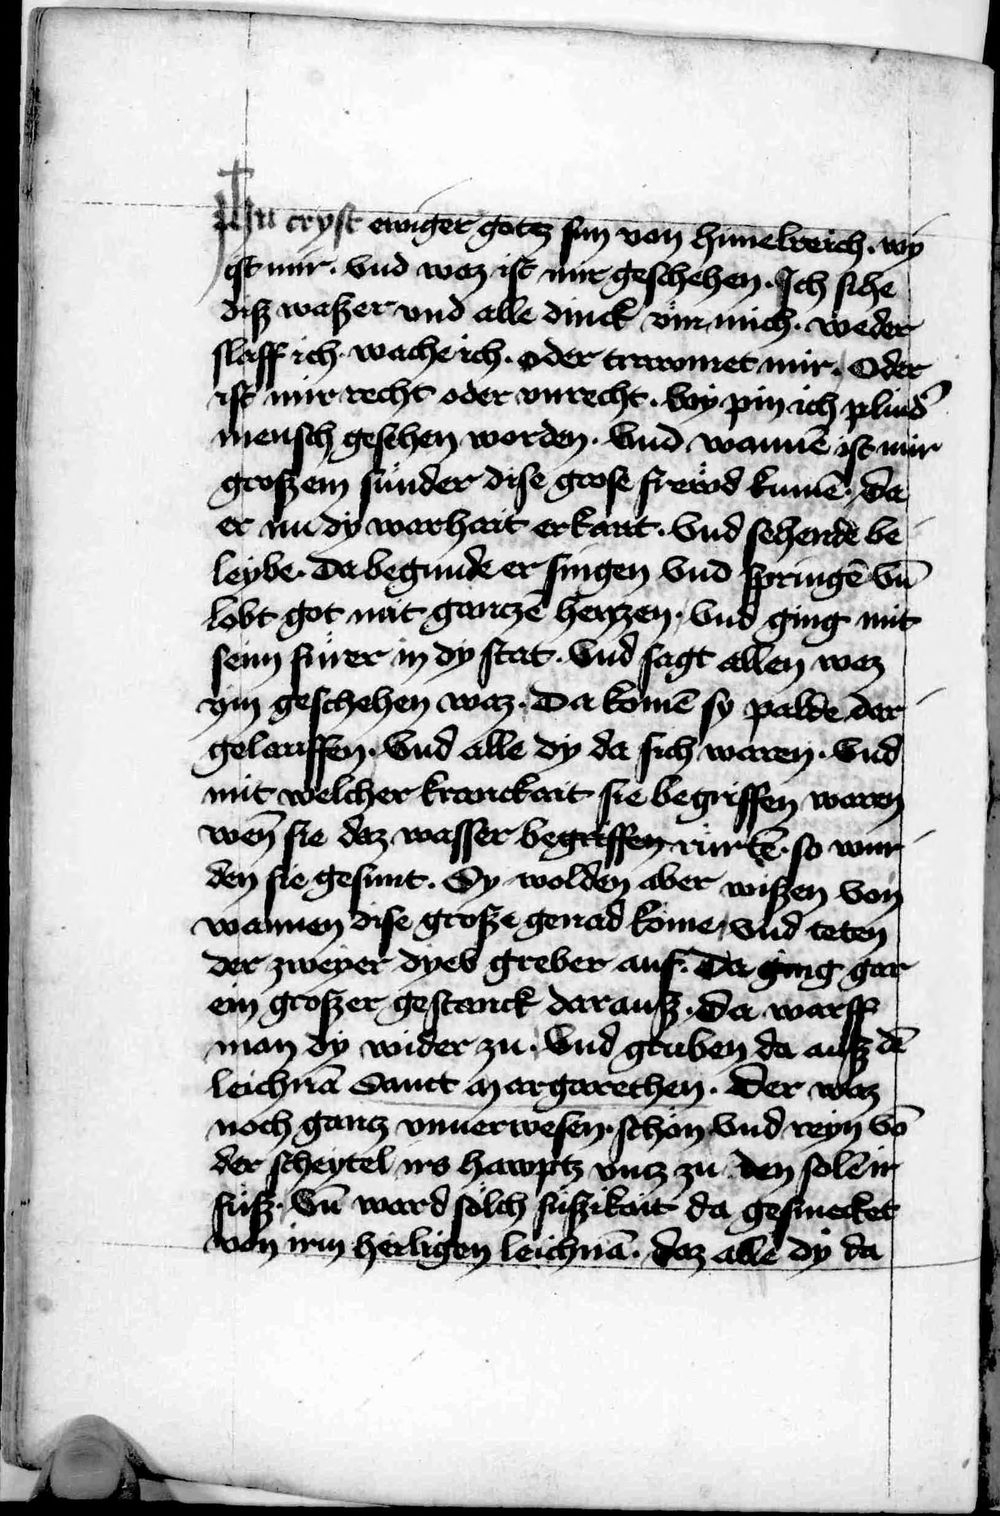 Jhu cryst ewiger gotz sun von himelreich. wy
ist mir. vnd waz ist mir geschehen. Ich sihe
diß waßer vnd alle dinck vm mich. weder
slaff ich. wache ich. oder trawmet mir. Oder
ist mir recht oder vnrecht. wy pin ich plind̕
mensch gesehen worden. Vnd wannē ist mir
großem sünder dise grose frewd kumē. Da
er nu dy warhait erkant. Vnd sehende be
leybe. Da begunde er singen vnd springē vn̄
lobt got mit ganczē herczen. Vnd ging mit
seim fürer in dy stat. Vnd sagt allen waz
ym geschehen waz. Da komē sy palde dar
gelauffen. Vnd alle dy da sich waren. Vnd
mit welcher kranckait sie begriffen waren
wen̄ sie daz wasser begriffen rürtē. so wur
den sie gesunt. Sy wolden aber wißen von
wannen dise große genad kōme. vnd teten
der zweyer dyeb greber auf. Da ging gar
ein großer gestanck darauß. Da warff
man dy wider zu. Vnd gruben da auß dē
leichnā Sanct Margarethen. Der waz
noch gantz vnuerwesen. schön vnd reyn vō
der scheytel irs hawptz vntz zu den solē ir
füß. Vn̄ ward sölch süßikait da gesmecket
von irm heiligen leichnā. daz alle dy da